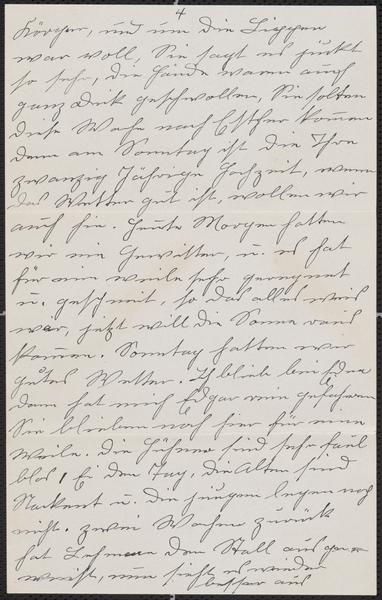 4
Körper, und um die Lippen
war voll, Sie sagt es juckt
so sehr, die Hände waren auch
ganz dick geschwollen, Sie solten
diese Woche nach Esther kommen
denn am Sonntag ist die Ihre
zwanzig Jährige Hochzeit, wenn
das Wetter gut ist, wollen wir
auch hin. Heute Morgen hatten
wir ein Gewitter, u. es hat
für ein weile sehr geregnet
u. geschneit, so das alles weis
war, jetzt will die Sonne raus
kommen. Sonntag hatten wir
gutes Wetter. Ich blieb bei
dann hat mich Edgar rein gefahren
Sie blieben noch hier für eine
Weile. Die Hühner sind sehr faul
blos 1 Ei den Tag, die Alten sind
u. die jungen legen noch
nicht. zwei Wochen zurück
hat Lehman den Stall ausge=
weist, nun sieht es wieder
besser aus